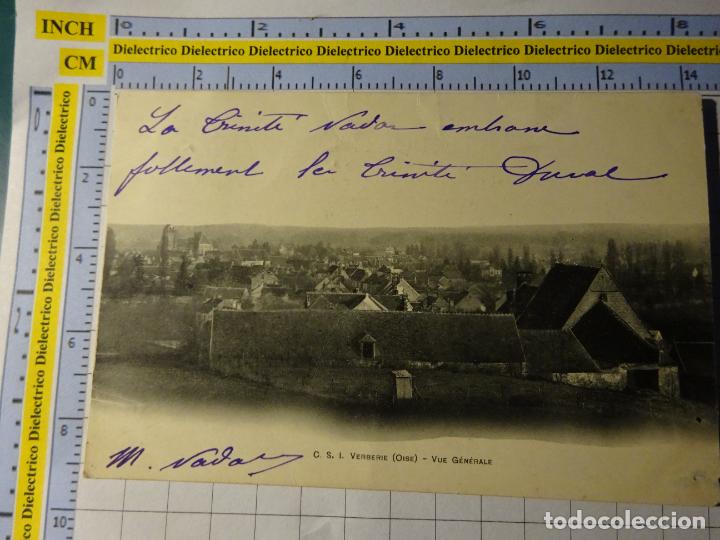 INCH 0 2 4 6 8
Dielectrico Dielectrico Dielectrico Dielectrico Dielectrico Dielectrico Dielectrico Dielectrico Dielectrico
CM 0 2 4 6 8 10 12 14
0
2
4
6
8
10
Dielectrico Dielectrico Dielectrico Dielectrico Dielectrico Dielectrico
La Trinité Nadar embrasse
follement la Trinité Duval
M. Nadar
C. S. I. VERBERIE (OISE) - VUE GÉNÉRALE
todocoleccion